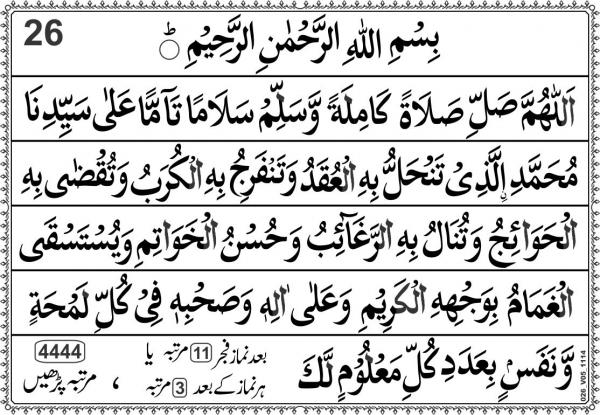 26
بِسْمِ اللهِ الرَّحْمٰنِ الرَّحِيْمِ
اَللّٰهُمَّ صَلِّ صَلَاةً كَامِلَةً وَّسَلِّمْ سَلَامًا تَآمًّا عَلٰى سَيِّدِنَا
مُحَمَّدِ ۣالَّذِىْ تَنْحَلُّ بِهِ الْعُقَدُ وَتَنْفَرِجُ بِهِ الْكُرَبُ وَتُقْضٰى بِهِ
الْحَوَائِجُ وَتُنَالُ بِهِ الرَّغَآئِبُ وَحُسْنُ الْخَوَاتِمِ وَيُسْتَسْقَى
الْغَمَامُ بِوَجْهِهِ الْكَرِيْمِ وَعَلٰى اٰلِهٖ وَصَحْبِهٖ فِىْ كُلِّ لَمْحَةٍ
وَّنَفَسٍ ۢ بِعَدَدِ كُلِّ مَعْلُوْمٍ لَّكَ
بعد نماز فجر 11 مرتبہ یا 4444
ہر نماز کے بعد 3 مرتبہ ، مرتبہ پڑھیں
026_V05_1114